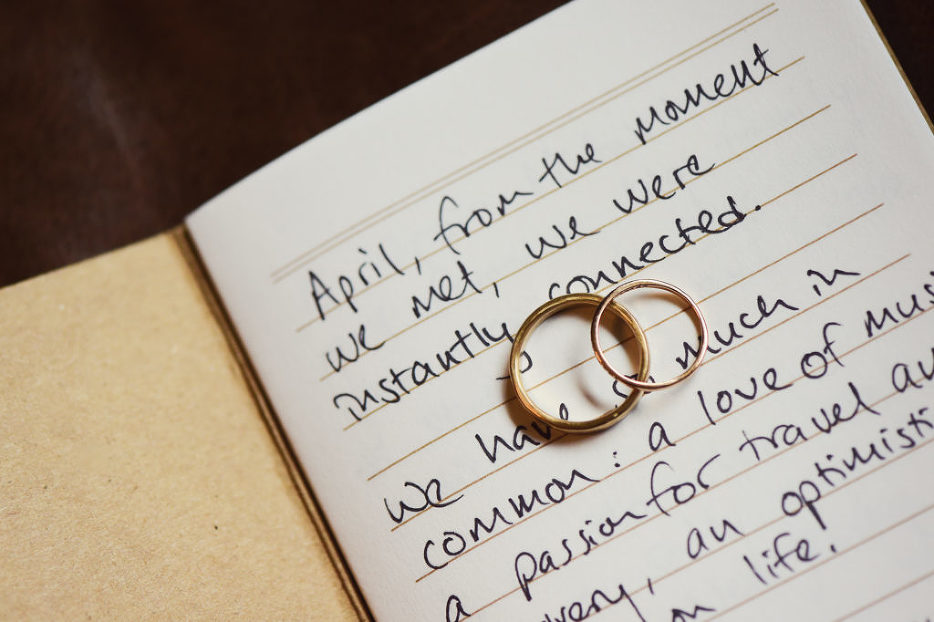 April, from the moment
we met, we were
instantly connected.
we have so much in
common: a love of music
a passion for travel an
a very, an optimisti
on life.